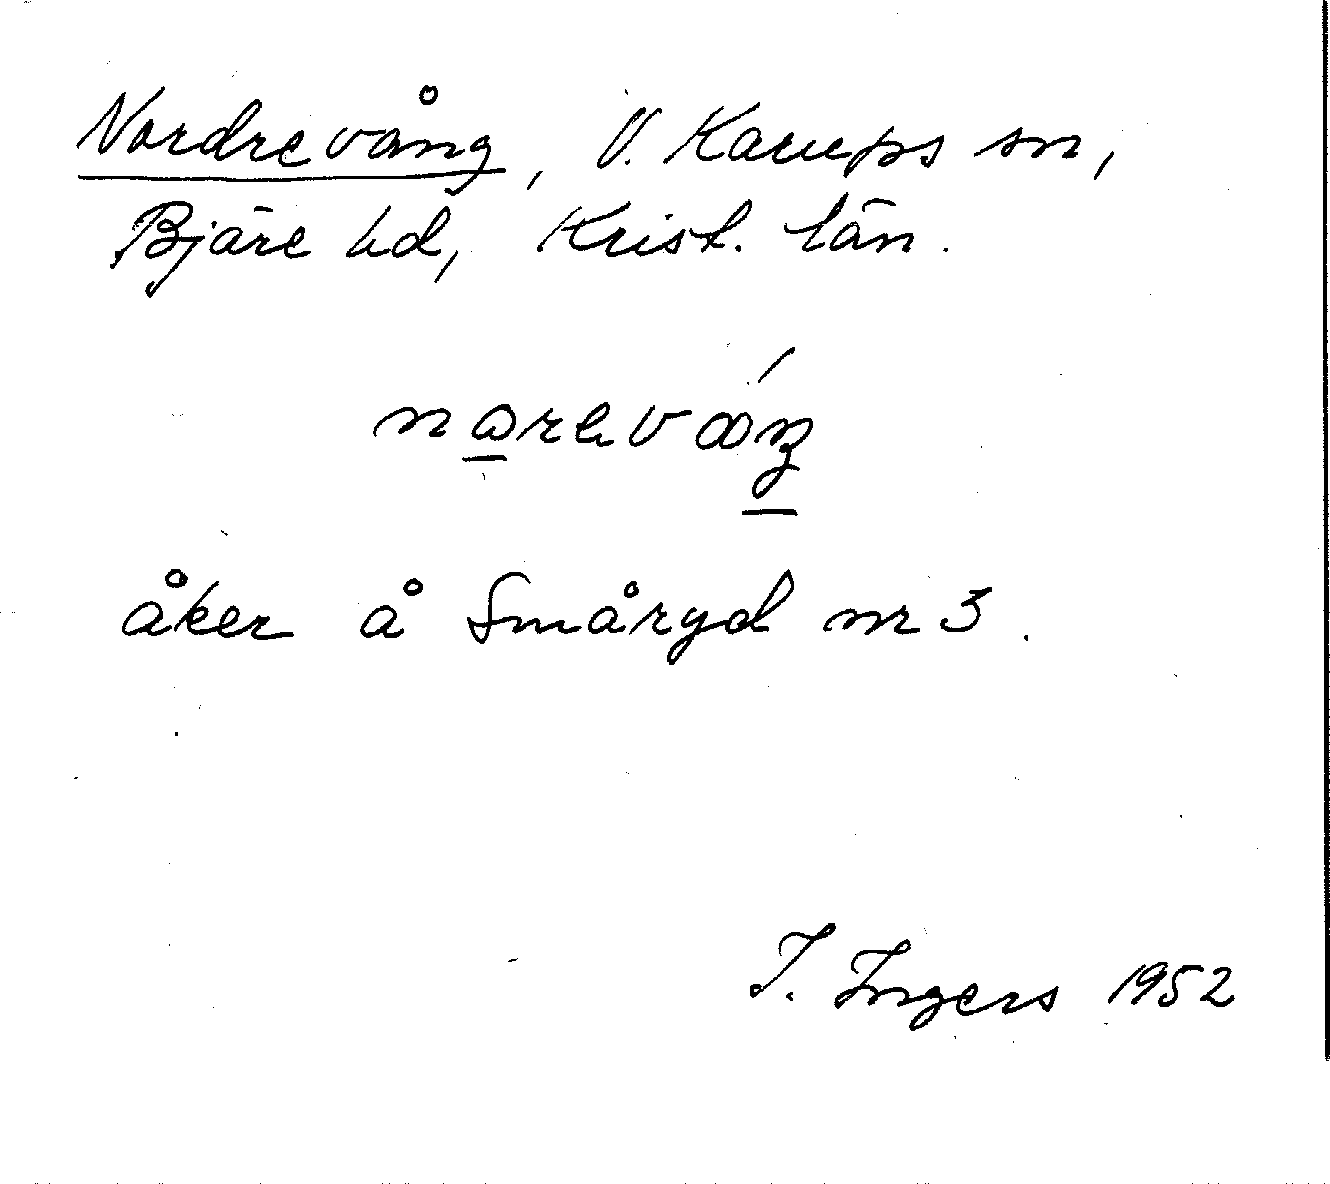 Nordrevång, V. Karups sn,
Bjäre hd, Krist. län.
åker å Småryd nr 3.
I. Ingers 1952